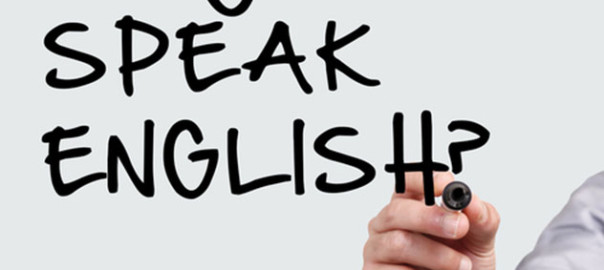 SPEAK
ENGLISH?